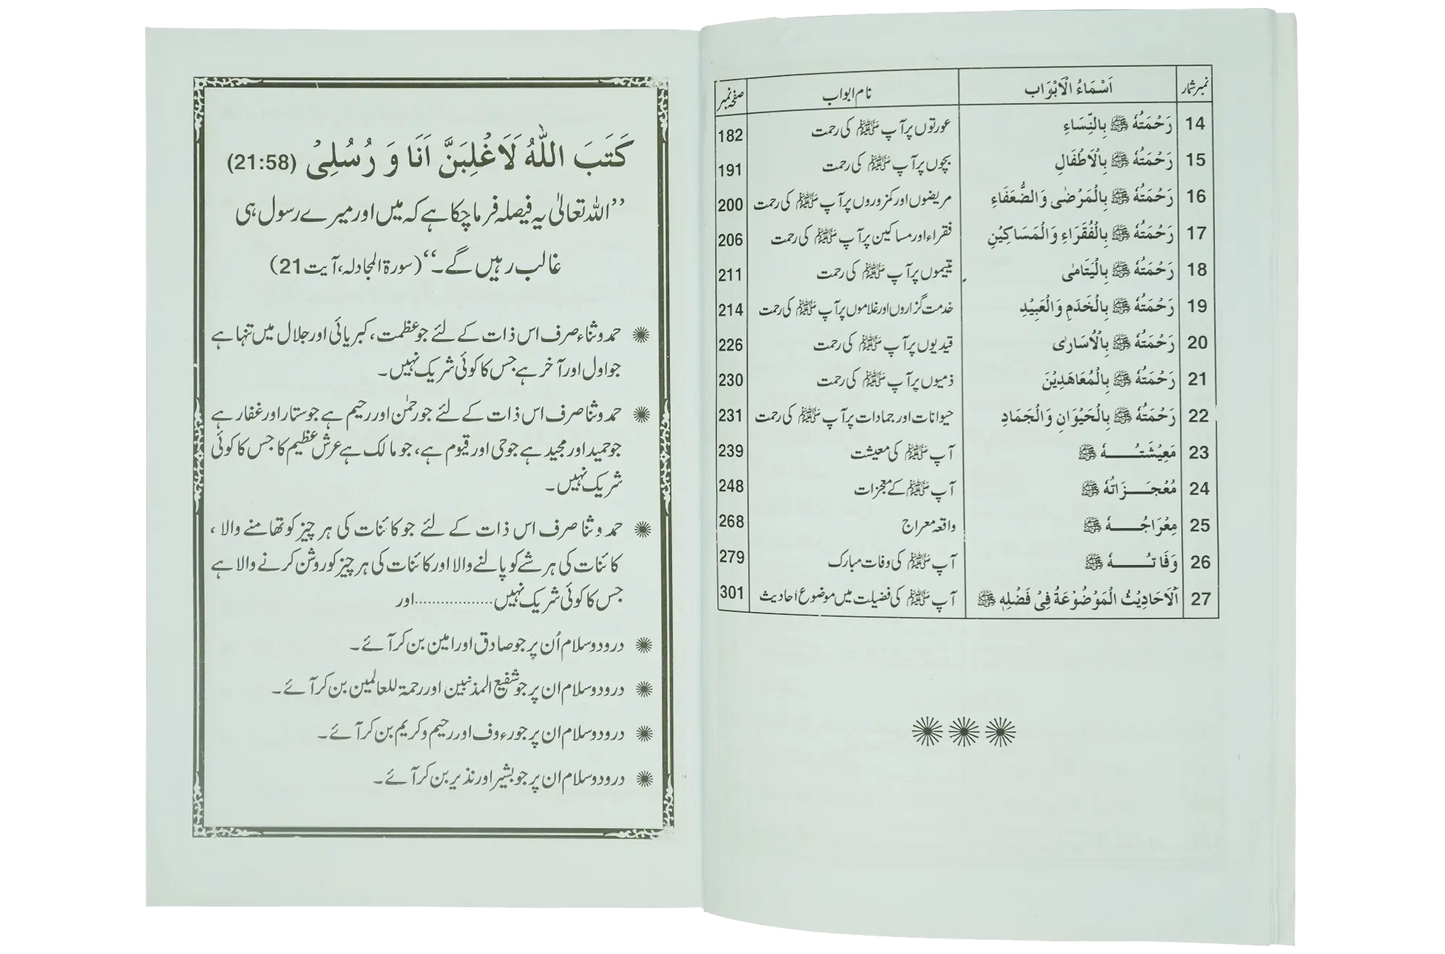 نمبر شمار	اَسْمَاءُ الْاَبْوَاب	نام ابواب	صفحہ نمبر
14	رَحْمَتُهٗ ﷺ بِالنِّسَاءِ	عورتوں پر آپ ﷺ کی رحمت	182
15	رَحْمَتُهٗ ﷺ بِالْاَطْفَالِ	بچوں پر آپ ﷺ کی رحمت	191
16	رَحْمَتُهٗ ﷺ بِالْمَرْضٰى وَالضُّعَفَاءِ	مریضوں اور کمزوروں پر آپ ﷺ کی رحمت	200
17	رَحْمَتُهٗ ﷺ بِالْفُقَرَاءِ وَالْمَسَاكِيْنِ	فقراء اور مساکین پر آپ ﷺ کی رحمت	206
18	رَحْمَتُهٗ ﷺ بِالْيَتَامٰى	یتیموں پر آپ ﷺ کی رحمت	211
19	رَحْمَتُهٗ ﷺ بِالْخَدَمِ وَالْعَبِيْدِ	خدمت گزاروں اور غلاموں پر آپ ﷺ کی رحمت	214
20	رَحْمَتُهٗ ﷺ بِالْاُسَارٰى	قیدیوں پر آپ ﷺ کی رحمت	226
21	رَحْمَتُهٗ ﷺ بِالْمُعَاهَدِيْنَ	ذمیوں پر آپ ﷺ کی رحمت	230
22	رَحْمَتُهٗ ﷺ بِالْحَيْوَانِ وَالْجَمَادِ	حیوانات اور جمادات پر آپ ﷺ کی رحمت	231
23	مَعِيْشَتُـــهٗ ﷺ	آپ ﷺ کی معیشت	239
24	مُعْجِــزَاتُهٗ ﷺ	آپ ﷺ کے معجزات	248
25	مِعْرَاجُـــهٗ ﷺ	واقعہ معراج	268
26	وَفَاتُـــهٗ ﷺ	آپ ﷺ کی وفات مبارک	279
27	اَلْاَحَادِيْثُ الْمَوْضُوْعَةُ فِيْ فَضْلِهٖ ﷺ	آپ ﷺ کی فضیلت میں موضوع احادیث	301
كَتَبَ اللّٰهُ لَاَغْلِبَنَّ اَنَا وَ رُسُلِيْ (21:58)
’’اللہ تعالیٰ یہ فیصلہ فرما چکا ہے کہ میں اور میرے رسول ہی
غالب رہیں گے۔‘‘ (سورۃ المجادلہ، آیت 21)
حمد و ثناء صرف اس ذات کے لئے جو عظمت، کبریائی اور جلال میں تنہا ہے
جو اول اور آخر ہے جس کا کوئی شریک نہیں۔
حمد و ثنا صرف اس ذات کے لئے جو رحمٰن اور رحیم ہے جو ستار اور غفار ہے
جو حمید اور مجید ہے جو حی اور قیوم ہے، جو مالک ہے عرش عظیم کا جس کا کوئی
شریک نہیں۔
حمد و ثنا صرف اس ذات کے لئے جو کائنات کی ہر چیز کو تھامنے والا،
کائنات کی ہر شے کو پالنے والا اور کائنات کی ہر چیز کو روشن کرنے والا ہے
جس کا کوئی شریک نہیں.................اور
درود و سلام اُن پر جو صادق اور امین بن کر آئے۔
درود و سلام ان پر جو شفیع المذنبین اور رحمۃ للعالمین بن کر آئے۔
درود و سلام ان پر جو رءوف اور رحیم و کریم بن کر آئے۔
درود و سلام ان پر جو بشیر اور نذیر بن کر آئے۔